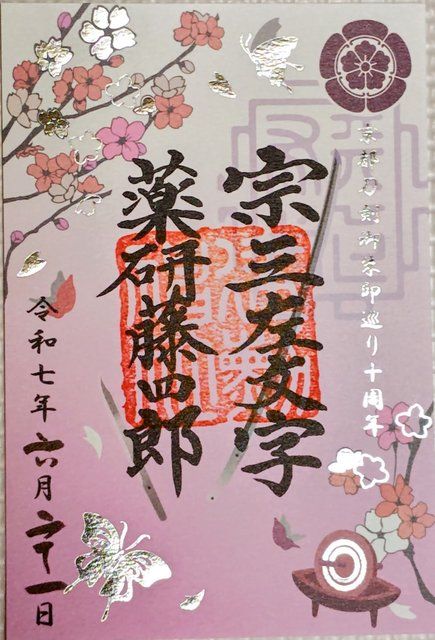 京都乃剣御朱印巡り十周年
宗三左文字
薬研藤四郎
令和七年六月二十一日